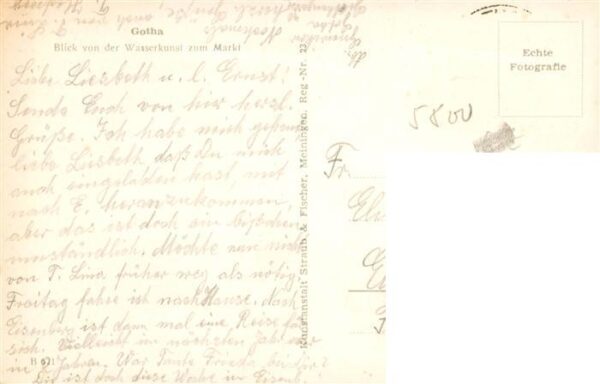 Gotha
Blick von der Wasserkunst zum Markt
Echte
Fotografie
Liebe Liesbeth u. l. Ernst!
Sende Euch von hier herzl.
Grüße. Ich habe mich gefreut
liebe Liesbeth daß Du mich
auch eingeladen hast, mit
nach E. heranzukommen,
aber das ist doch ein bißchen
umständlich. Möchte nun nicht
von T. Lina früher weg als nötig.
Freitag fahre ich nach Hause. Nach
Eisenberg ist dann mal eine Reise für
sich. Vielleicht im nächsten Jahr oder
in 2 Jahren. War Tante Frieda bei Dir?
Sie ist doch diese Woche in Eisenb.
H 671
Kunstanstalt Straub & Fischer, Meiningen, Reg-Nr. 23
5800
Fr.